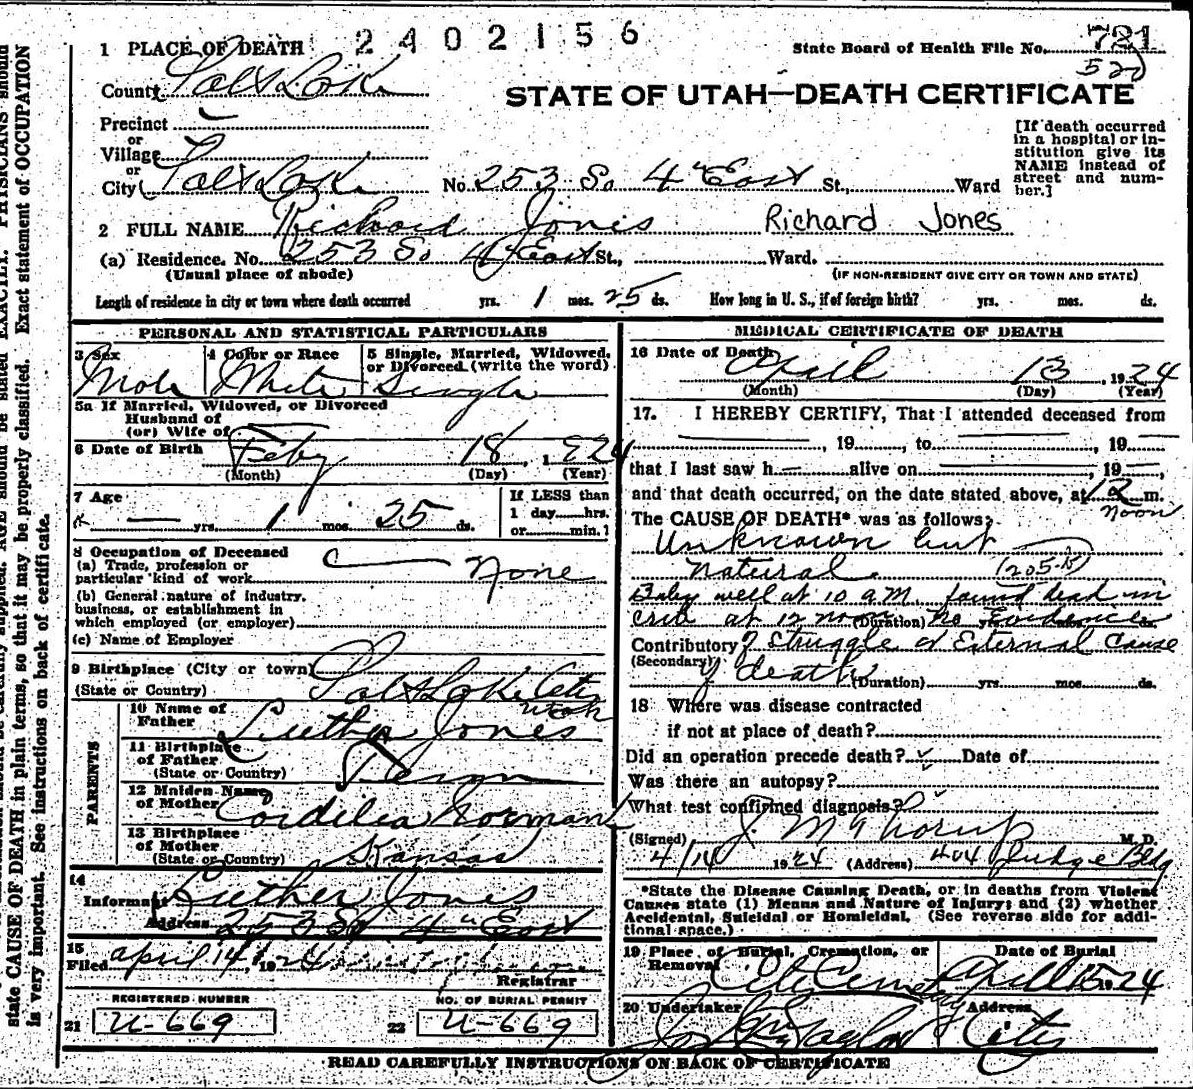 2402156
1 PLACE OF DEATH
State Board of Health File No. 721
520
County Salt Lake
STATE OF UTAH—DEATH CERTIFICATE
Precinct
or
Village
or
City Salt Lake No. 253 So 4th East St., Ward
[If death occurred in a hospital or institution give its NAME instead of street and number.]
2 FULL NAME Richard Jones Richard Jones
(a) Residence. No. 253 So 4th East St., Ward.
(Usual place of abode) (IF NON-RESIDENT GIVE CITY OR TOWN AND STATE)
Length of residence in city or town where death occurred yrs. 1 mos. 25 ds. How long in U. S., if of foreign birth? yrs. mos. ds.
PERSONAL AND STATISTICAL PARTICULARS
3 Sex Male
4 Color or Race White
5 Single, Married, Widowed, or Divorced (write the word) Single
5a If Married, Widowed, or Divorced
Husband of
(or) Wife of
6 Date of Birth Feby 18, 1924
(Month) (Day) (Year)
7 Age — yrs. 1 mos. 25 ds.
If LESS than
1 day......hrs.
or......min.
8 Occupation of Deceased
(a) Trade, profession or
particular kind of work None
(b) General nature of industry,
business, or establishment in
which employed (or employer)
(c) Name of Employer
9 Birthplace (City or town) Salt Lake City
(State or Country) Utah
PARENTS
10 Name of
Father Luther Jones
11 Birthplace
of Father
(State or Country)
12 Maiden Name
of Mother Cordelia Norman
13 Birthplace
of Mother
(State or Country) Kansas
14
Informant Luther Jones
Address 253 So 4th East
15
Filed april 14, 1924
Registrar
REGISTERED NUMBER
21 U-669
NO. OF BURIAL PERMIT
22 U-669
MEDICAL CERTIFICATE OF DEATH
16 Date of Death April 13, 1924
(Month) (Day) (Year)
17. I HEREBY CERTIFY, That I attended deceased from
, 19 , to , 19
that I last saw h alive on , 19 ,
and that death occurred, on the date stated above, at 12 m.
noon
The CAUSE OF DEATH* was as follows:
Unknown but
natural (205-B)
Baby well at 10 a.m. found dead in
crib at 12 noon (Duration) No Evidence
Contributory of Struggle or External Cause
(Secondary) of death (Duration) yrs. mos. ds.
18 Where was disease contracted
if not at place of death?
Did an operation precede death? Date of
Was there an autopsy?
What test confirmed diagnosis?
(Signed) J. M. Thorup M. D.
4/14 1924 (Address) 404 Judge Bldg
*State the Disease Causing Death, or in deaths from Violent
Causes state (1) Means and Nature of Injury; and (2) whether
Accidental, Suicidal or Homicidal. (See reverse side for addi-
tional space.)
19 Place of Burial, Cremation, or
Removal City Cemetery
Date of Burial
April 15, 24
20 Undertaker
Address
City
READ CAREFULLY INSTRUCTIONS ON BACK OF CERTIFICATE
state CAUSE OF DEATH in plain terms, so that it may be properly classified. Exact statement of OCCUPATION
is very important. See instructions on back of certificate.